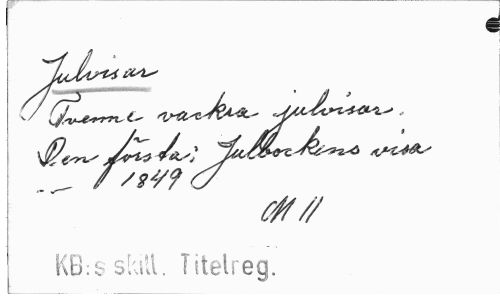 Julvisar
Tvenne vackra julvisor.
Den första: Julbockens visa
-- 1849
M 11
KB:s skill. Titelreg.